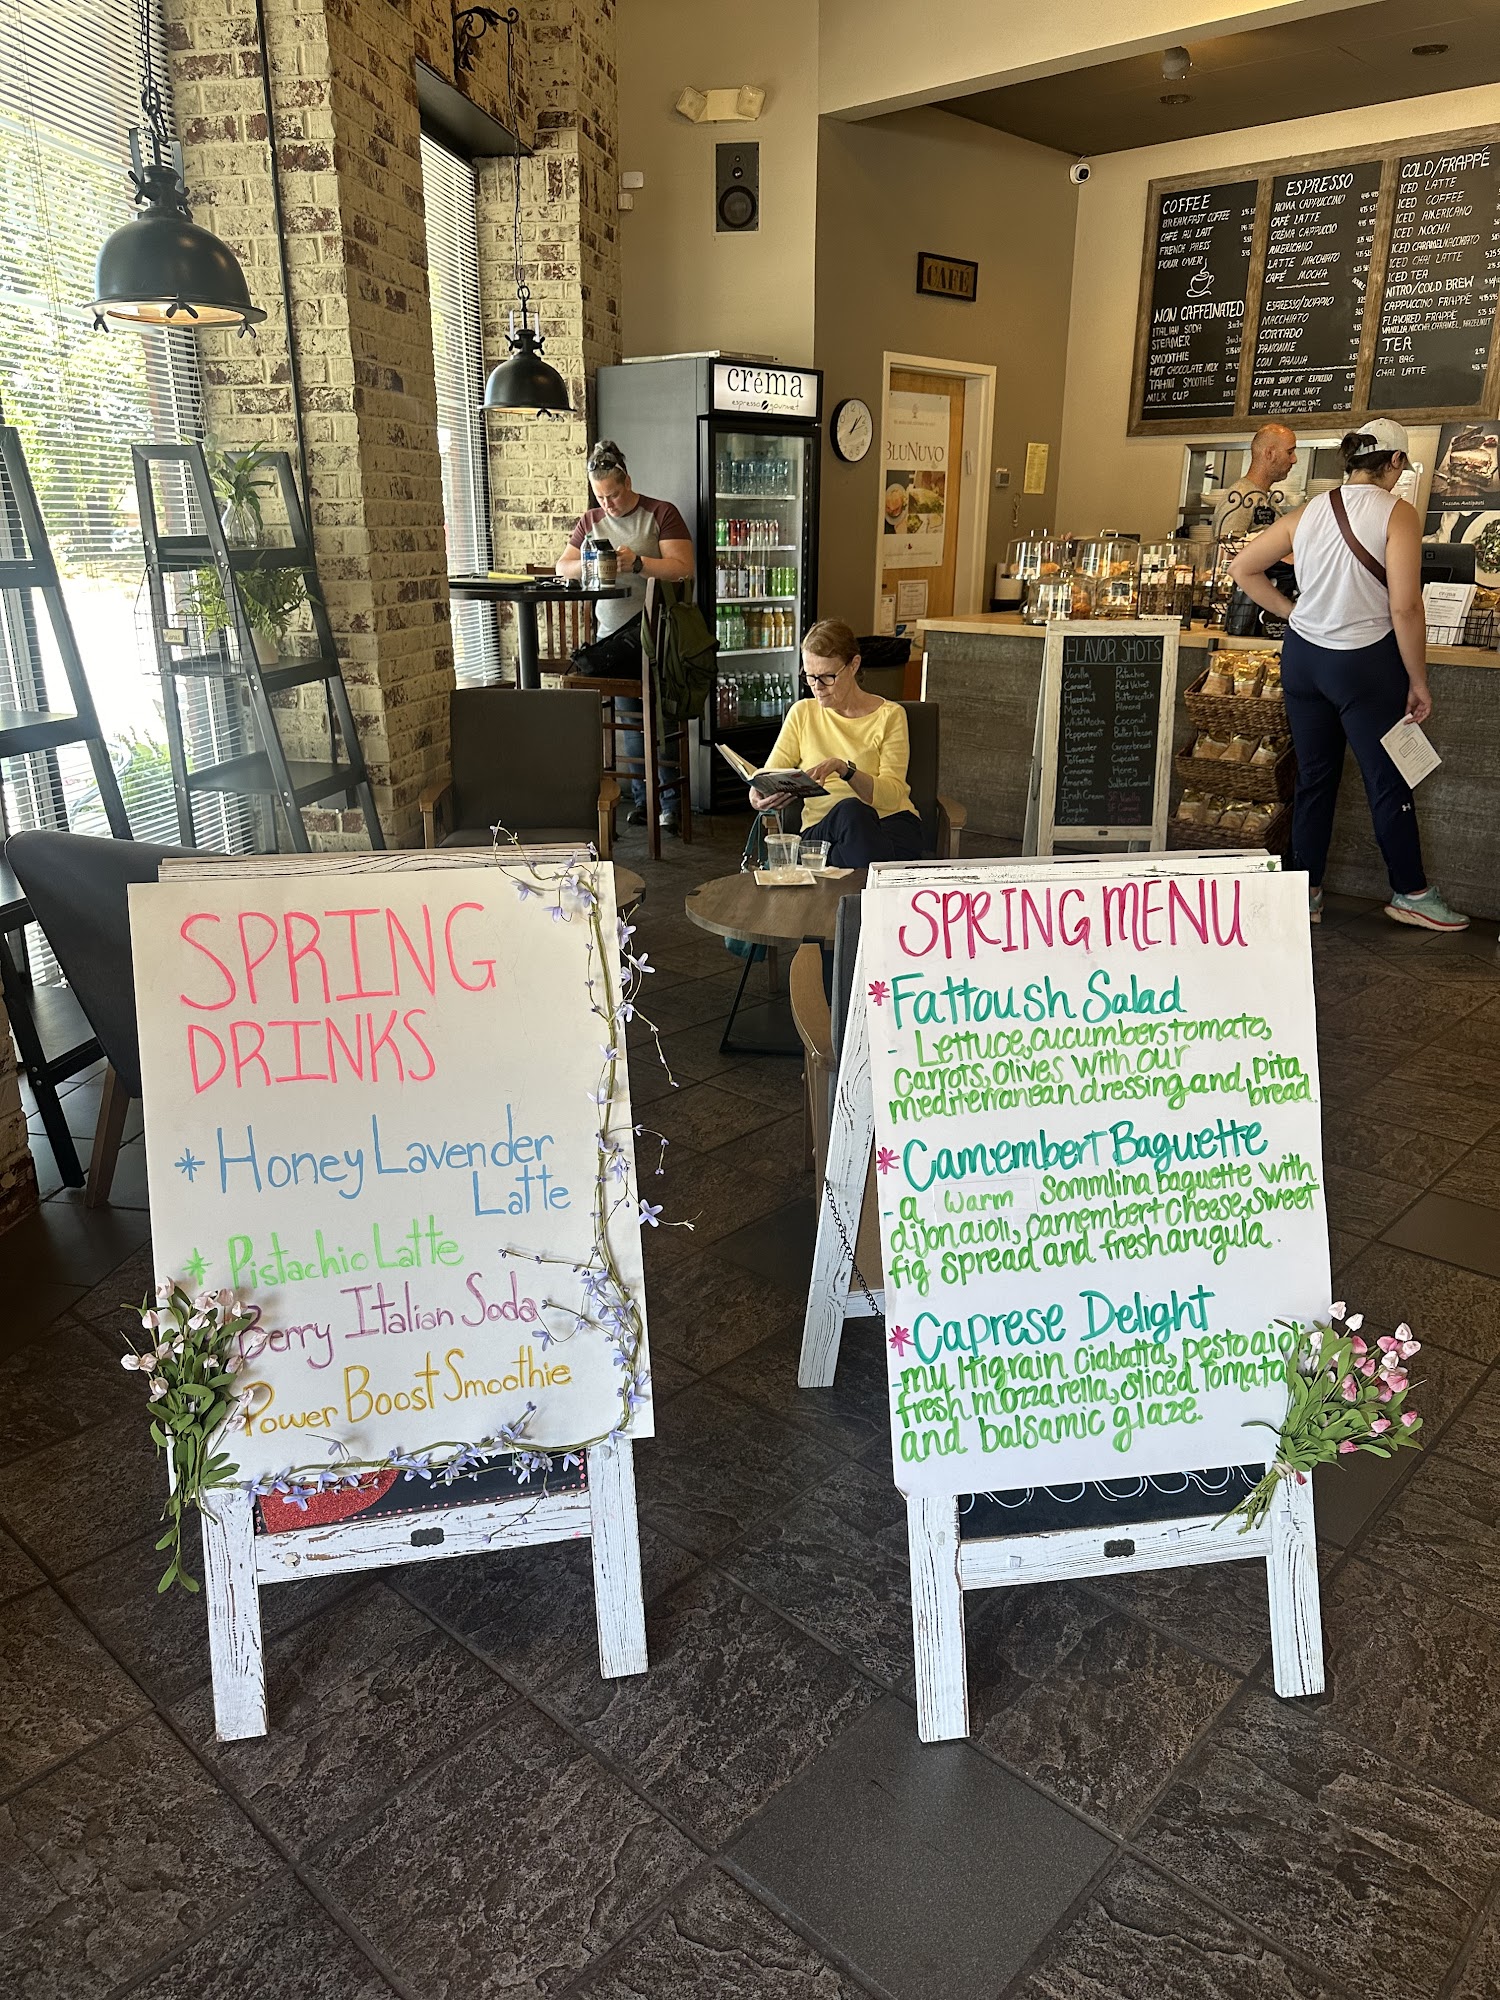 SPRING
DRINKS
* Honey Lavender
Latte
* Pistachio Latte
Berry Italian Soda
Power Boost Smoothie
SPRING MENU
* Fattoush Salad
- Lettuce, cucumbers, tomato,
carrots, olives with our
mediterranean dressing and pita
bread.
* Camembert Baguette
- a warm sommlina baguette with
dijon aioli, camembert cheese, sweet
fig spread and fresh arugula.
* Caprese Delight
- multigrain ciabatta, pesto aioli
fresh mozzarella, sliced tomata
and balsamic glaze.
créma
espresso gourmet
CAFÉ
BLUNUVO
FLAVOR SHOTS
Vanilla Pistachio
Caramel Red Velvet
Hazelnut Butterscotch
Mocha Almond
White Mocha Coconut
Peppermint Butter Pecan
Lavender Gingerbread
Toffeenut Cupcake
Cinnamon Honey
Amaretto Salted Caramel
Irish Cream SF Vanilla
Pumpkin SF Caramel
Cookie
COFFEE
BREAKFAST COFFEE
CAFE AU LAIT
FRENCH PRESS
POUR OVER
NON CAFFEINATED
ITALIAN SODA
STEAMER
SMOOTHIE
HOT CHOCOLATE MILK
TAHINI SMOOTHIE
MILK CUP
ESPRESSO
ROMA CAPPUCCINO
CAFÉ LATTE
CRÉMA CAPPUCCIO
AMERICANO
LATTE MACCHIATO
CAFÉ MOCHA
ESPRESSO/DOPPIO
MACCHIATO
CORTADO
PANONNIE
CON PANNA
EXTRA SHOT OF ESPRESSO
ADD: FLAVOR SHOT
SUB: SOY, ALMOND, OAT,
COCONUT MILK
COLD/FRAPPÉ
ICED LATTE
ICED COFFEE
ICED AMERICANO
ICED MOCHA
ICED CARAMEL MACCHIATO
ICED CHAI LATTE
ICED TEA
NITRO/COLD BREW
CAPPUCCINO FRAPPÉ
FLAVORED FRAPPÉ
VANILLA, MOCHA, CARAMEL, HAZELNUT
TEA
TEA BAG
CHAI LATTE
Tuscan Antipasti